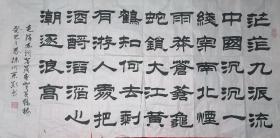 茫茫九派流
中國沉沉一
綫穿南北煙
雨莽蒼蒼龜
蛇鎖大江黃
鶴知何去剩
有游人處把
酒酹滔滔心
潮逐浪高